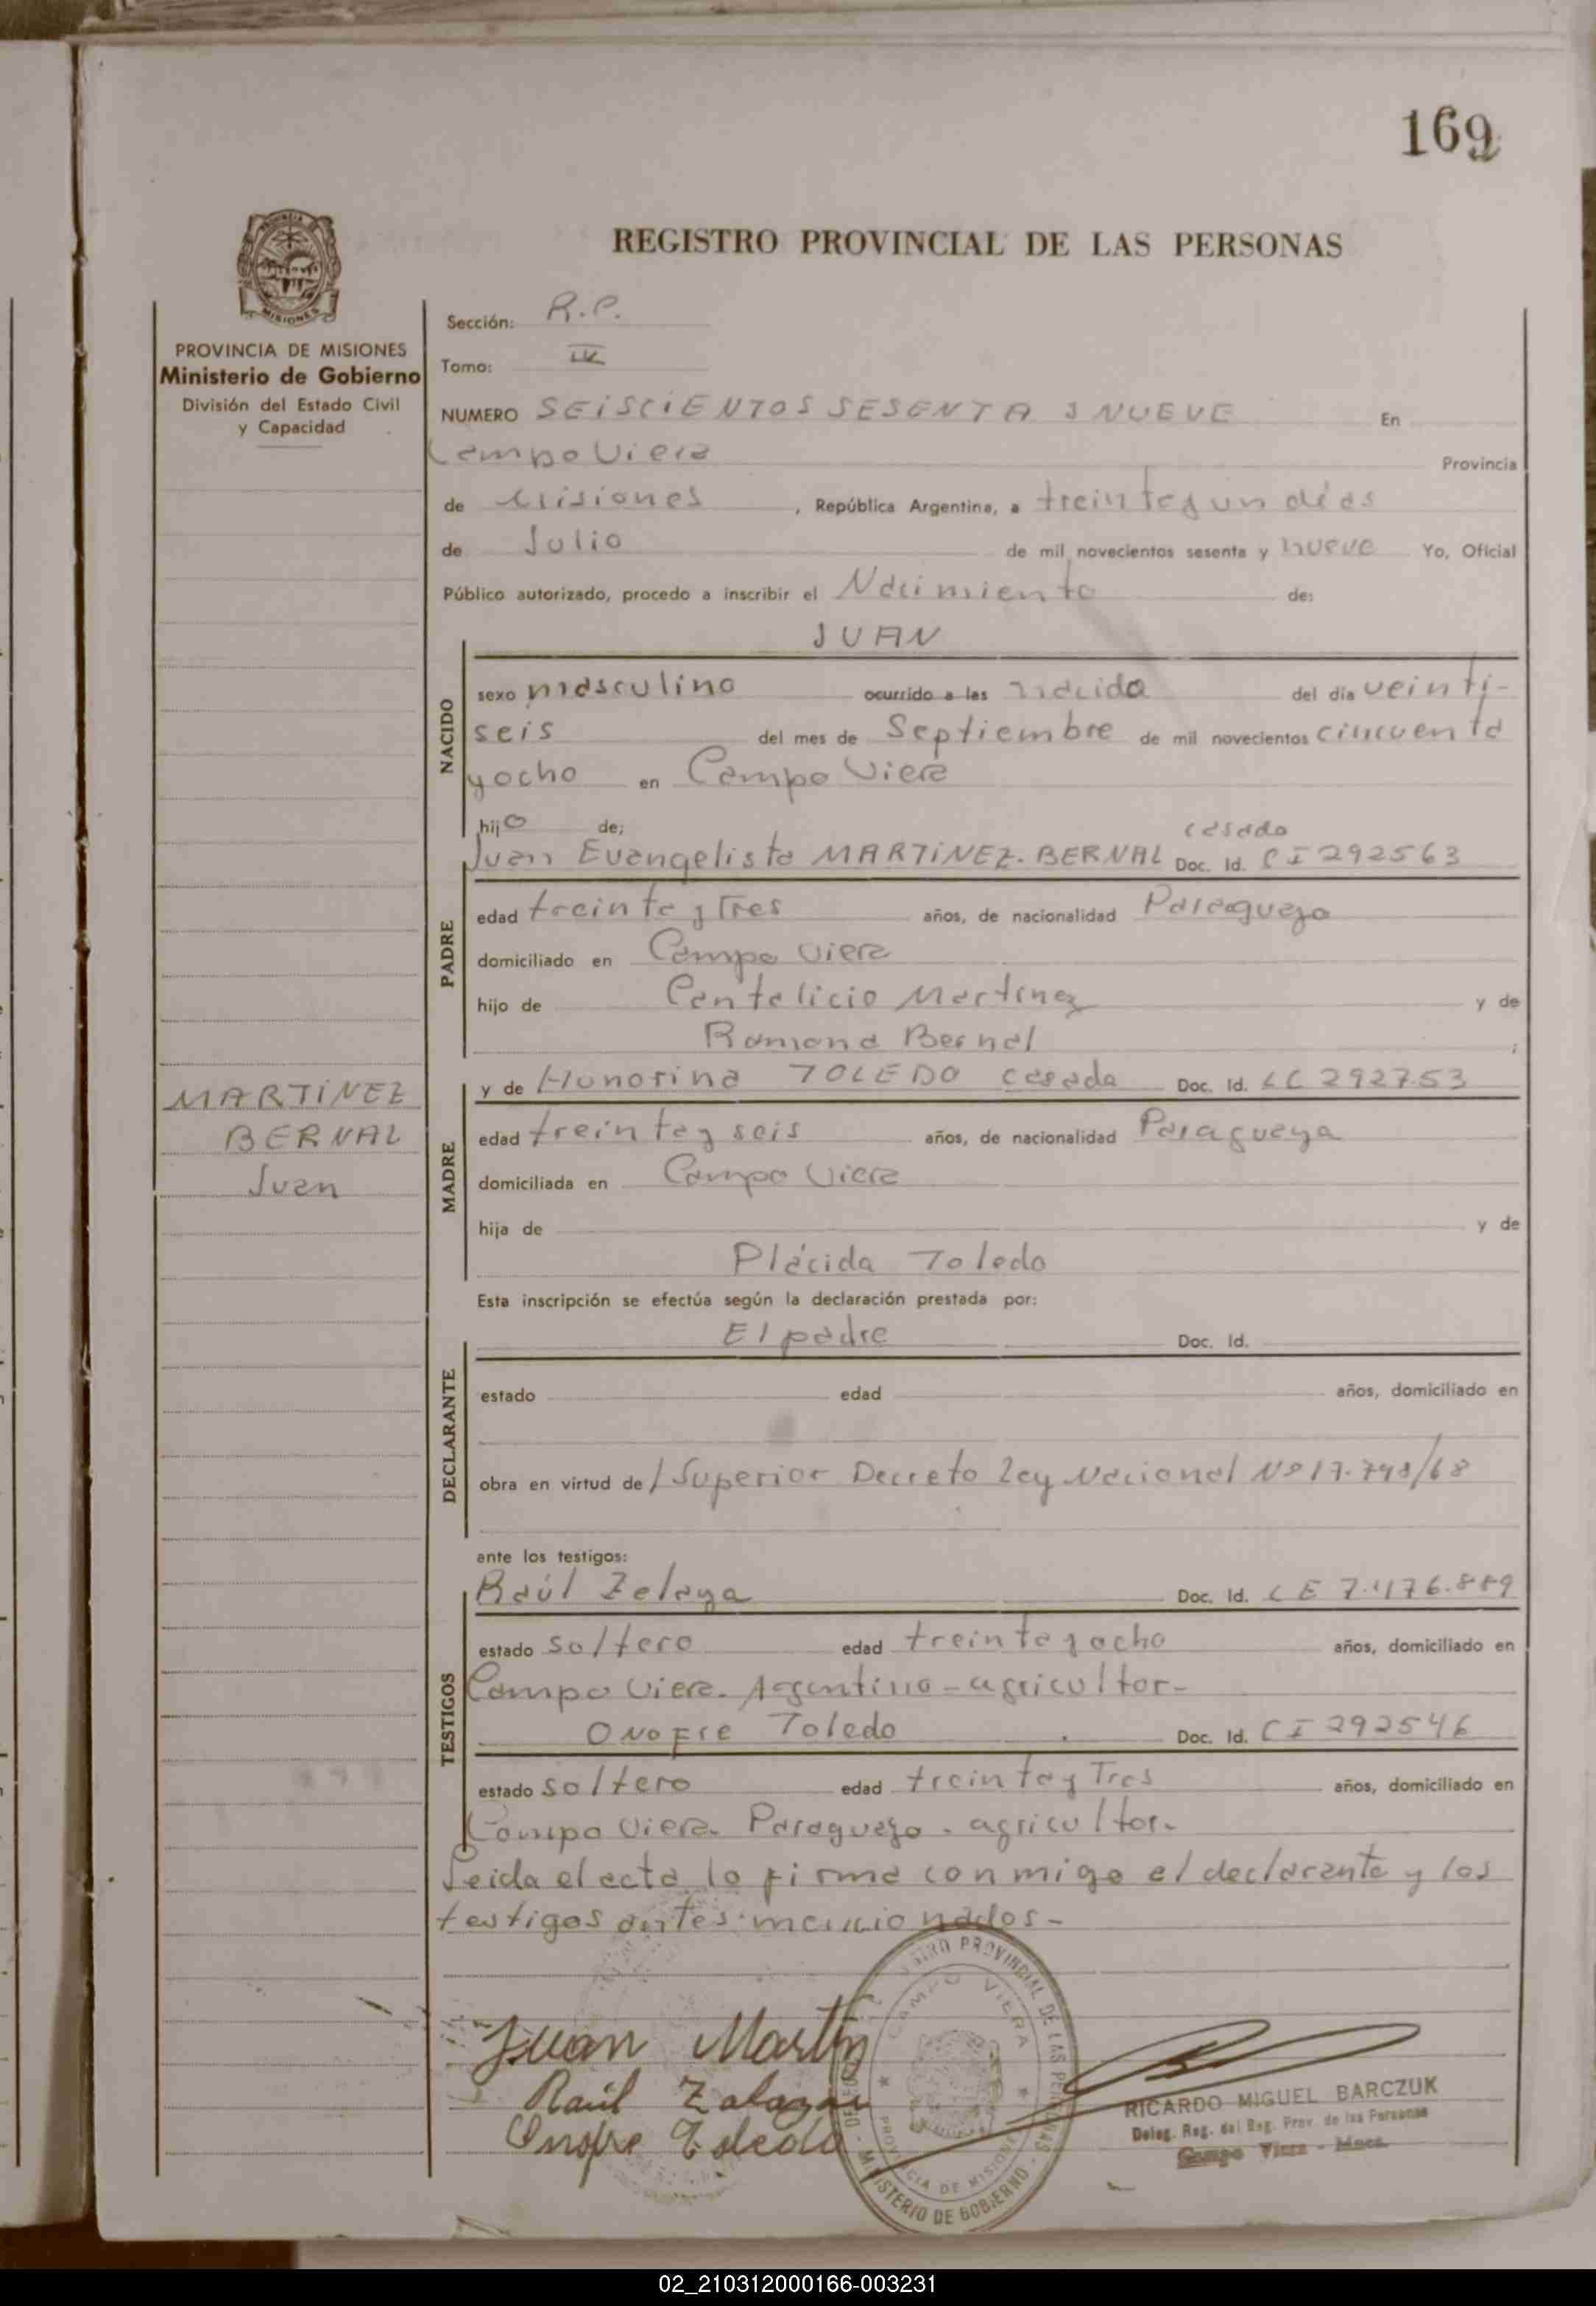 169
REGISTRO PROVINCIAL DE LAS PERSONAS
MISIONES
PROVINCIA DE MISIONES
Ministerio de Gobierno
División del Estado Civil
y Capacidad
Sección: R.P.
Tomo: IV
NUMERO SEISCIENTOS SESENTA y NUEVE En
Campo Viera Provincia
de Misiones, República Argentina, a treinta y un días
de Julio de mil novecientos sesenta y nueve Yo, Oficial
Público autorizado, procedo a inscribir el Nacimiento de:
JUAN
NACIDO
sexo masculino ocurrido a las nacido del día veinti-
seis del mes de Septiembre de mil novecientos cincuenta
y ocho en Campo Viera
hijo de;
casado
Juan Evangelista MARTINEZ. BERNAL Doc. Id. CI 292563
PADRE
edad treinta y Tres años, de nacionalidad Paraguayo
domiciliado en Campo Viera
hijo de Cantalicio Martinez y de
Ramona Bernal;
MARTINEZ
BERNAL
Juan
y de Honorina TOLEDO casada Doc. Id. LC 292753
MADRE
edad treinta y seis años, de nacionalidad Paraguaya
domiciliada en Campo Viera
hija de y de
Plácida Toledo
Esta inscripción se efectúa según la declaración prestada por:
El padre Doc. Id.
DECLARANTE
estado edad años, domiciliado en
obra en virtud de / Superior Decreto Ley Nacional Nº
ante los testigos:
Raúl Zelaya Doc. Id.
TESTIGOS
estado soltero edad treinta y ocho años, domiciliado en
Campo Viera. Argentino - agricultor-
ONOFRE Toledo Doc. Id. CI 292546
estado soltero edad treinta y Tres años, domiciliado en
Campo Viera. Paraguayo - agricultor.
Leida el acta lo firma conmigo el declarante y los
testigos antes mencionados-
REGISTRO PROVINCIAL DE LAS PERSONAS
CAMPO VIERA
PROVINCIA DE MISIONES
MINISTERIO DE GOBIERNO
Juan Martin
Raúl
Onofre Toledo
RICARDO MIGUEL BARCZUK
Deleg. Reg. del Reg. Prov. de las Personas
Campo Viera - Mnes.
02_210312000166-003231